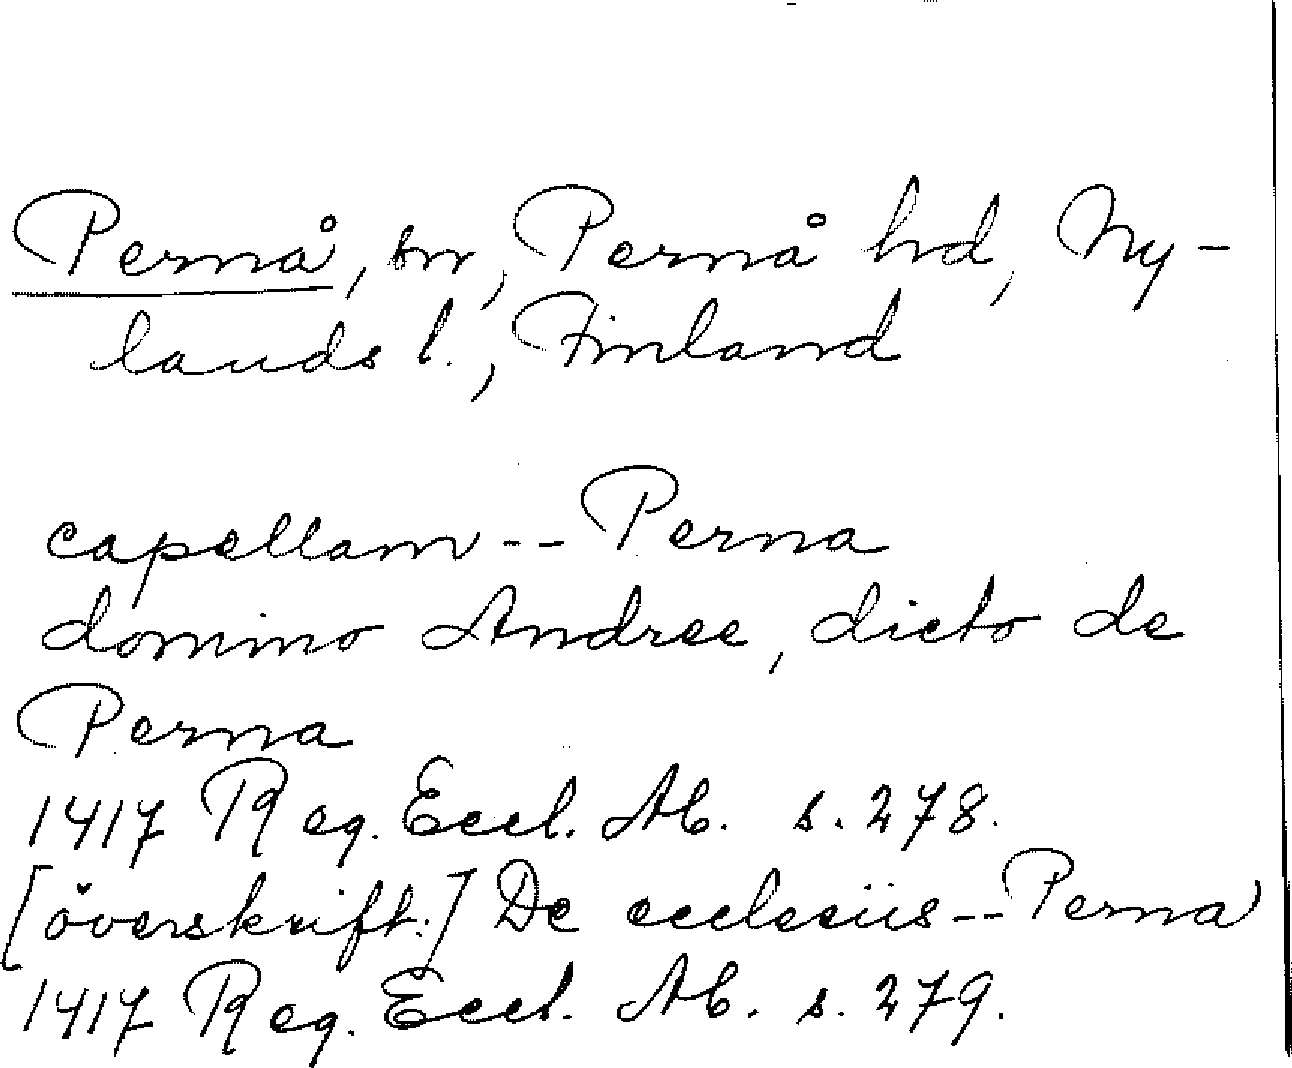 Pernå, sn, Pernå hd, Ny-
lands l., Finland
capellam -- Perna
domino Andree, dicto de
Perna
1417 Reg. Eccl. Ab. s. 278.
[överskrift:] De ecclesiis -- Perna
1417 Reg. Eccl. Ab. s. 279.